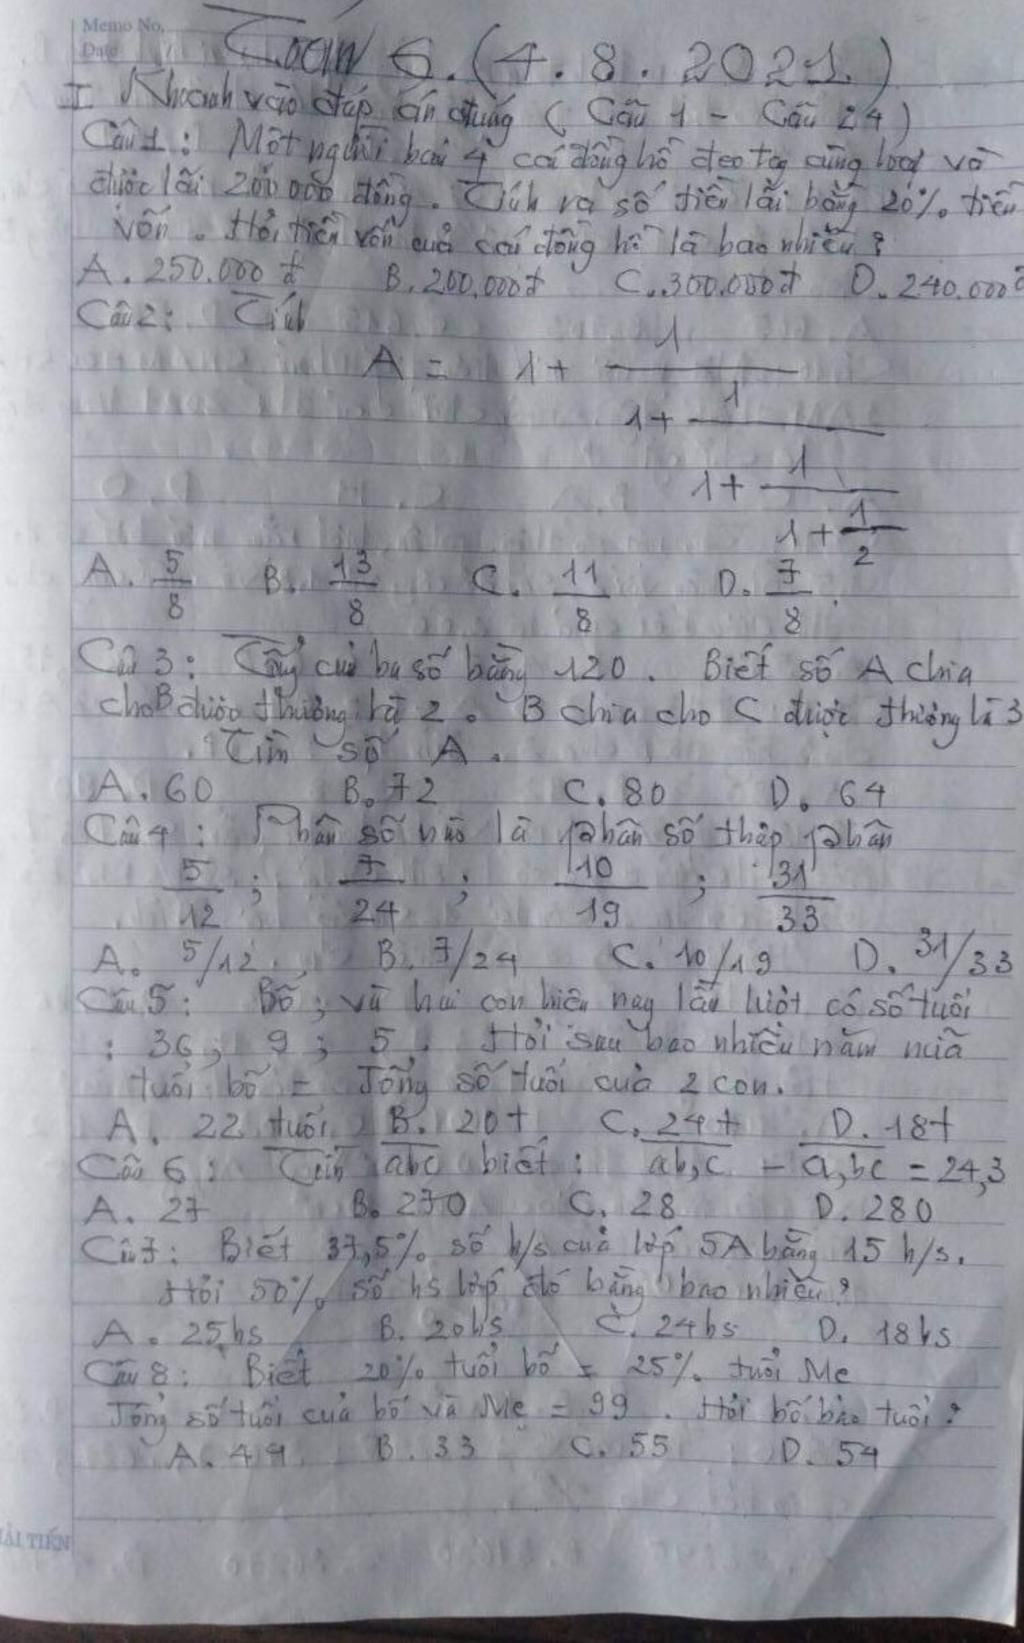 Memo No.
Date
Toán 6. (4.8.2021.)
I Khoanh vào đáp án đúng (Câu 1 - Câu 24)
Câu 1: Một người bán 4 cái đồng hồ đeo tay cùng loại và
được lãi 200 000 đồng. Tính ra số tiền lãi bằng 20% tiền
vốn. Hỏi tiền vốn của cái đồng hồ là bao nhiêu?
A. 250.000 đ B. 200.000đ C. 300.000đ D. 240.000đ
Câu 2: Tính
A = 1 + 1
1 + 1
1 + 1
1 + 1/2
A. 5/8 B. 13/8 C. 11/8 D. 7/8.
Câu 3: Tổng của ba số bằng 120. Biết số A chia
cho B được thương là 2. B chia cho C được thương là 3
Tìm số A.
A. 60 B. 72 C. 80 D. 64
Câu 4: Phân số nào là phân số thập phân
5/12 ; 7/24 ; 10/19 ; 31/33
A. 5/12 B. 7/24 C. 10/19 D. 31/33
Câu 5: Bố; và hai con hiện nay lần lượt có số tuổi
: 36; 9; 5. Hỏi sau bao nhiêu năm nữa
tuổi bố = Tổng số tuổi của 2 con.
A. 22 tuổi B. 20t C. 24t D. 18t
Câu 6: Tìm abc biết: ab,c - a,bc = 24,3
A. 27 B. 270 C. 28 D. 280
Câu 7: Biết 37,5% số h/s của lớp 5A bằng 15 h/s.
Hỏi 50% số hs lớp đó bằng bao nhiêu?
A. 25hs B. 20hs C. 24hs D. 18hs
Câu 8: Biết 20% tuổi bố = 25% tuổi Mẹ
Tổng số tuổi của bố và Mẹ = 99. Hỏi bố bao tuổi?
A. 44 B. 33 C. 55 D. 54
HẢI TIẾN